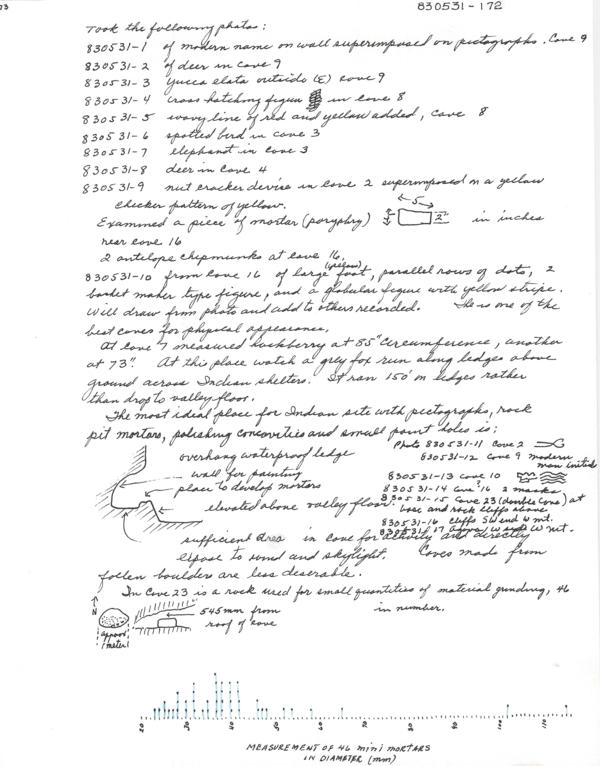 73
830531-172
Took the following photos:
830531-1 of modern name on wall superimposed on pictographs. Cove 9
830531-2 of deer in cove 9
830531-3 yucca elata outside (E) cove 9
830531-4 cross hatching figure in cove 8
830531-5 wavy line of red and yellow added, cove 8
830531-6 spotted bird in cove 3
830531-7 elephant in cove 3
830531-8 deer in cove 4
830531-9 nut cracker devise in cove 2 superimposed on a yellow
checker pattern of yellow.
Examined a piece of mortar (poryphry) 5 2" in inches
near cove 16
2 antelope chipmunks at cove 16.
830531-10 from cove 16 of large (yellow) foot, parallel rows of dots, 2
basket maker type figure, and a globular figure with yellow stripe.
Will draw from photo and add to others recorded. is one of the
best coves for physical appearance.
At cove 7 measured hackberry at 85" circumference, another
at 73". At this place watch a grey fox run along ledges above
ground across Indian shelters. It ran 150' on ledges rather
than drop to valley floor.
The most idial place for Indian site with pictographs, rock
pit mortars, polishing concavities and small paint holes is;
Photo 830531-11 Cove 2
830531-12 Cove 9 modern
man initials
overhang waterproof ledge
wall for painting
place to develop mortars
elevated above valley floor.
830531-13 cove 10
830531-14 cove? 16 2 masks
830531-15 Cove 23 (double cove) at
base and rock cliffs above
830531-16 cliffs SW end W mt.
830531-17 W mt.
sufficient area in cove for activity and directly
expose to wind and skylight. Coves made from
fallen boulders are less deserable.
In Cove 23 is a rock used for small quantities of material grinding, 46
in number.
N
approx
1 meter
545mm from
roof of cove
20 30 40 50 60 70 80 90 100 110
MEASUREMENT OF 46 mini MORTARS
IN DIAMETER (mm)